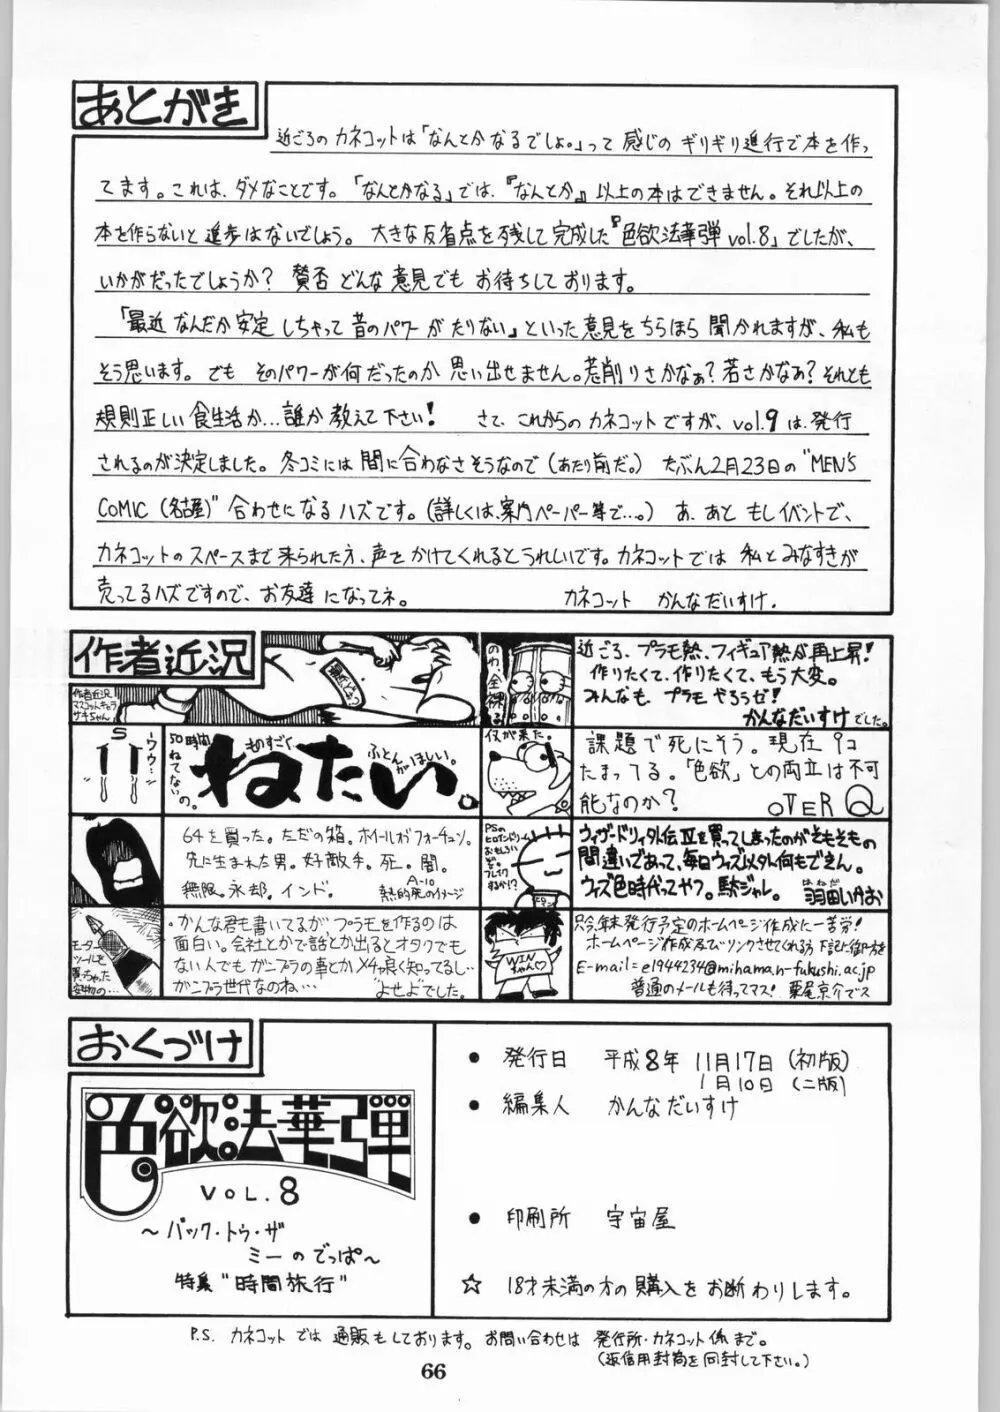 あとがき
近ごろのカネコットは「なんとかなるでしょ。」って感じのギリギリ進行で本を作っ
てます。これは、ダメなことです。「なんとかなる」では、『なんとか』以上の本はできません。それ以上の
本を作らないと進歩はないでしょう。大きな反省点を残して完成した『色欲法華弾vol.8」でしたが、
いかがだったでしょうか？賛否どんな意見でもお待ちしております。
「最近なんだか安定しちゃって昔のパワーがたりない」といった意見をちらほら聞かれますが、私も
そう思います。でもそのパワーが何だったのか思い出せません。荒削りさかなぁ？若さかなぁ？それとも
規則正しい食生活か…誰か教えて下さい！さて、これからのカネコットですが、vol.9は、発行
されるのが決定しました。冬コミには間に合わなさそうなので(あたり前だ。)たぶん2月23日の"MEN'S
COMIC(名古屋)"合わせになるハズです。(詳しくは、案内ペーパー等で…。)あ、あともしイベントで、
カネコットのスペースまで来られた方、声をかけてくれるとうれしいです。カネコットでは私とみなすきが
売ってるハズですので、お友達になってネ。カネコット かんなだいすけ.
作者近況
作者近況
マスコットキャラ
サキちゃん
のわ、全裸る。
近ごろ、プラモ熱、フィギュア熱が再上昇！
作りたくて、作りたくて、もう大変。
みんなも、プラモやろうぜ！
かんなだいすけでした。
S
ーウウ…ン
50時間
ねてない
の。
ものすごく
ねたい。
ふとんがほしい。
何が来た。
課題で死にそう。現在9コ
たまってる。「色欲」との両立は不可
能なのか？
OVER Q
64を買った。ただの箱。ホイールオブフォーチュン。
先に生まれた男。好敵手。死。闇。
無限。永却。インド。
A-10
熱的死のイメージ
PSの
ヒロインドリーム
おもしろい
ぞ。
ブレイク
するか!?
ウィザードリィ外伝Ⅳを買ってしまったのがそもそもの
間違いであって、毎日ウィズ以外何もできん。
ウィズ色時代ってヤツ。駄ジャレ。羽田いかお
モーター
ツールを
買っちゃった
安物の…
・かんな君も書いてるが、プラモを作るのは
面白い。会社とかで話とか出るとオタクでも
ない人でもガンプラの事とかメチャ良く知ってるし…
ガンプラ世代なのね…"よせよ"でした。
WIN
ちゃん♡
只今年末発行予定のホームページ作成に一苦労！
ホームページ作成及びリンクさせてくれる方下記に御一方を
E-mail=e1944234@mihama.n-fukushi.ac.jp
普通のメールも待ってマス！ 栗尾京介でス
おくづけ
色欲法華弾
VOL.8
～バック・トゥ・ザ
ミーのでっぱ～
特集"時間旅行"
● 発行日 平成8年 11月17日(初版)
1月10日(二版)
● 編集人 かんなだいすけ
● 印刷所 宇宙屋
☆ 18才未満の方の購入をお断わりします。
P.S. カネコットでは通販もしております。お問い合わせは発行所・カネコット係まで。
(返信用封筒を同封して下さい。)
66